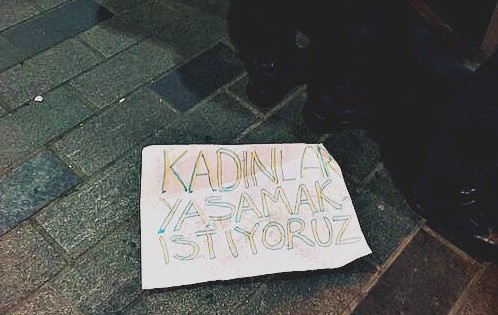 KADINLAR
YAŞAMAK
İSTİYORUZ